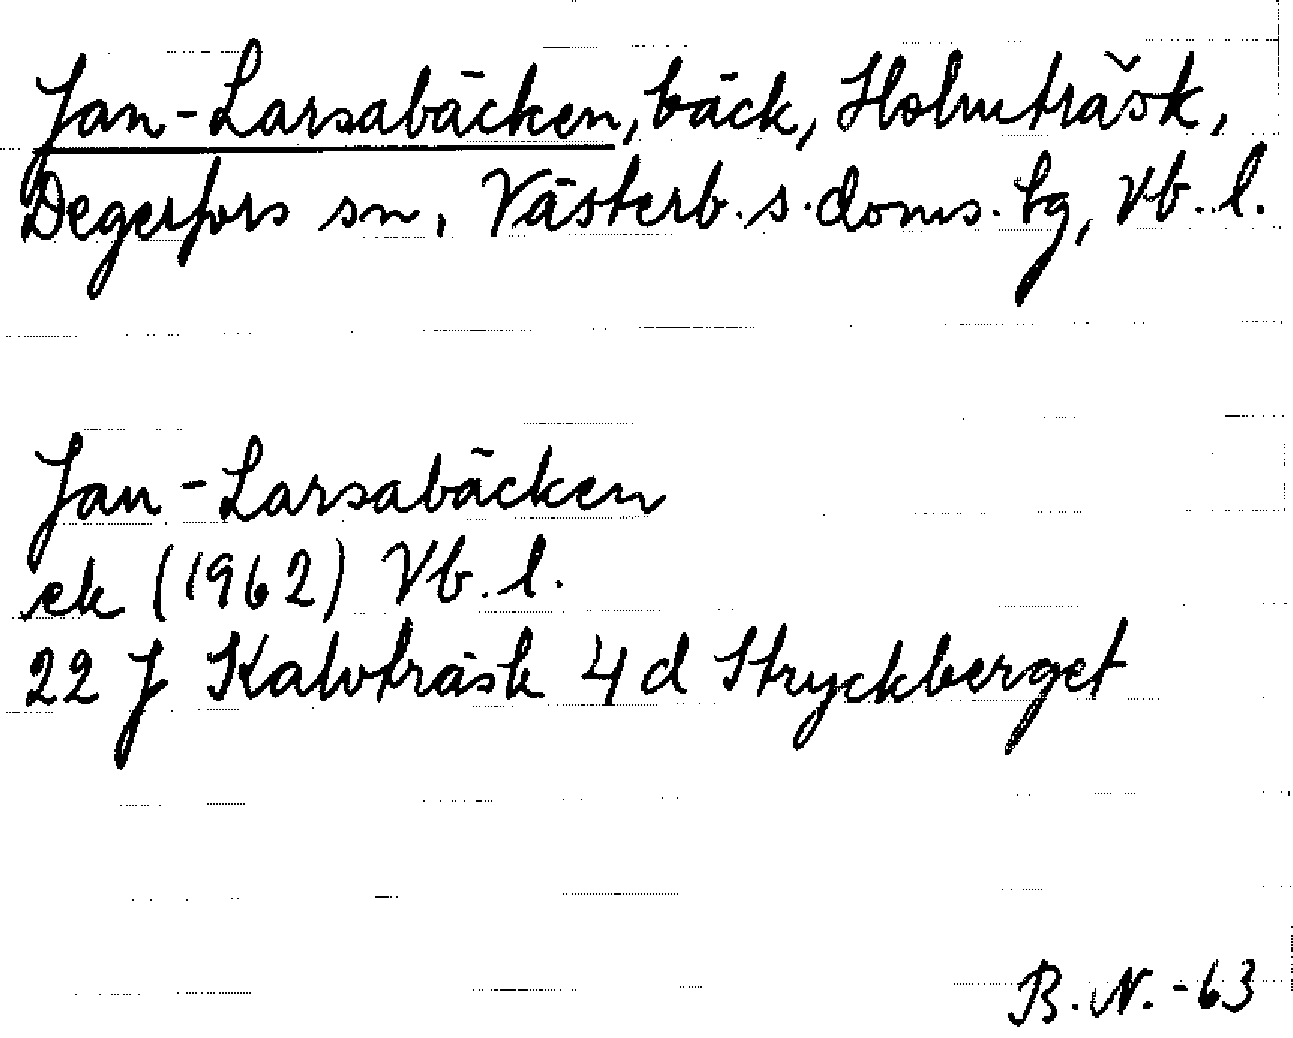 Jan-Larsabäcken, bäck, Holmträsk,
Degerfors sn, Västerb. s. doms. tg, Vb. l.
Jan-Larsabäcken
ek (1962) Vb. l.
22 J Kalvträsk 4 d Stryckberget
B.N. -63